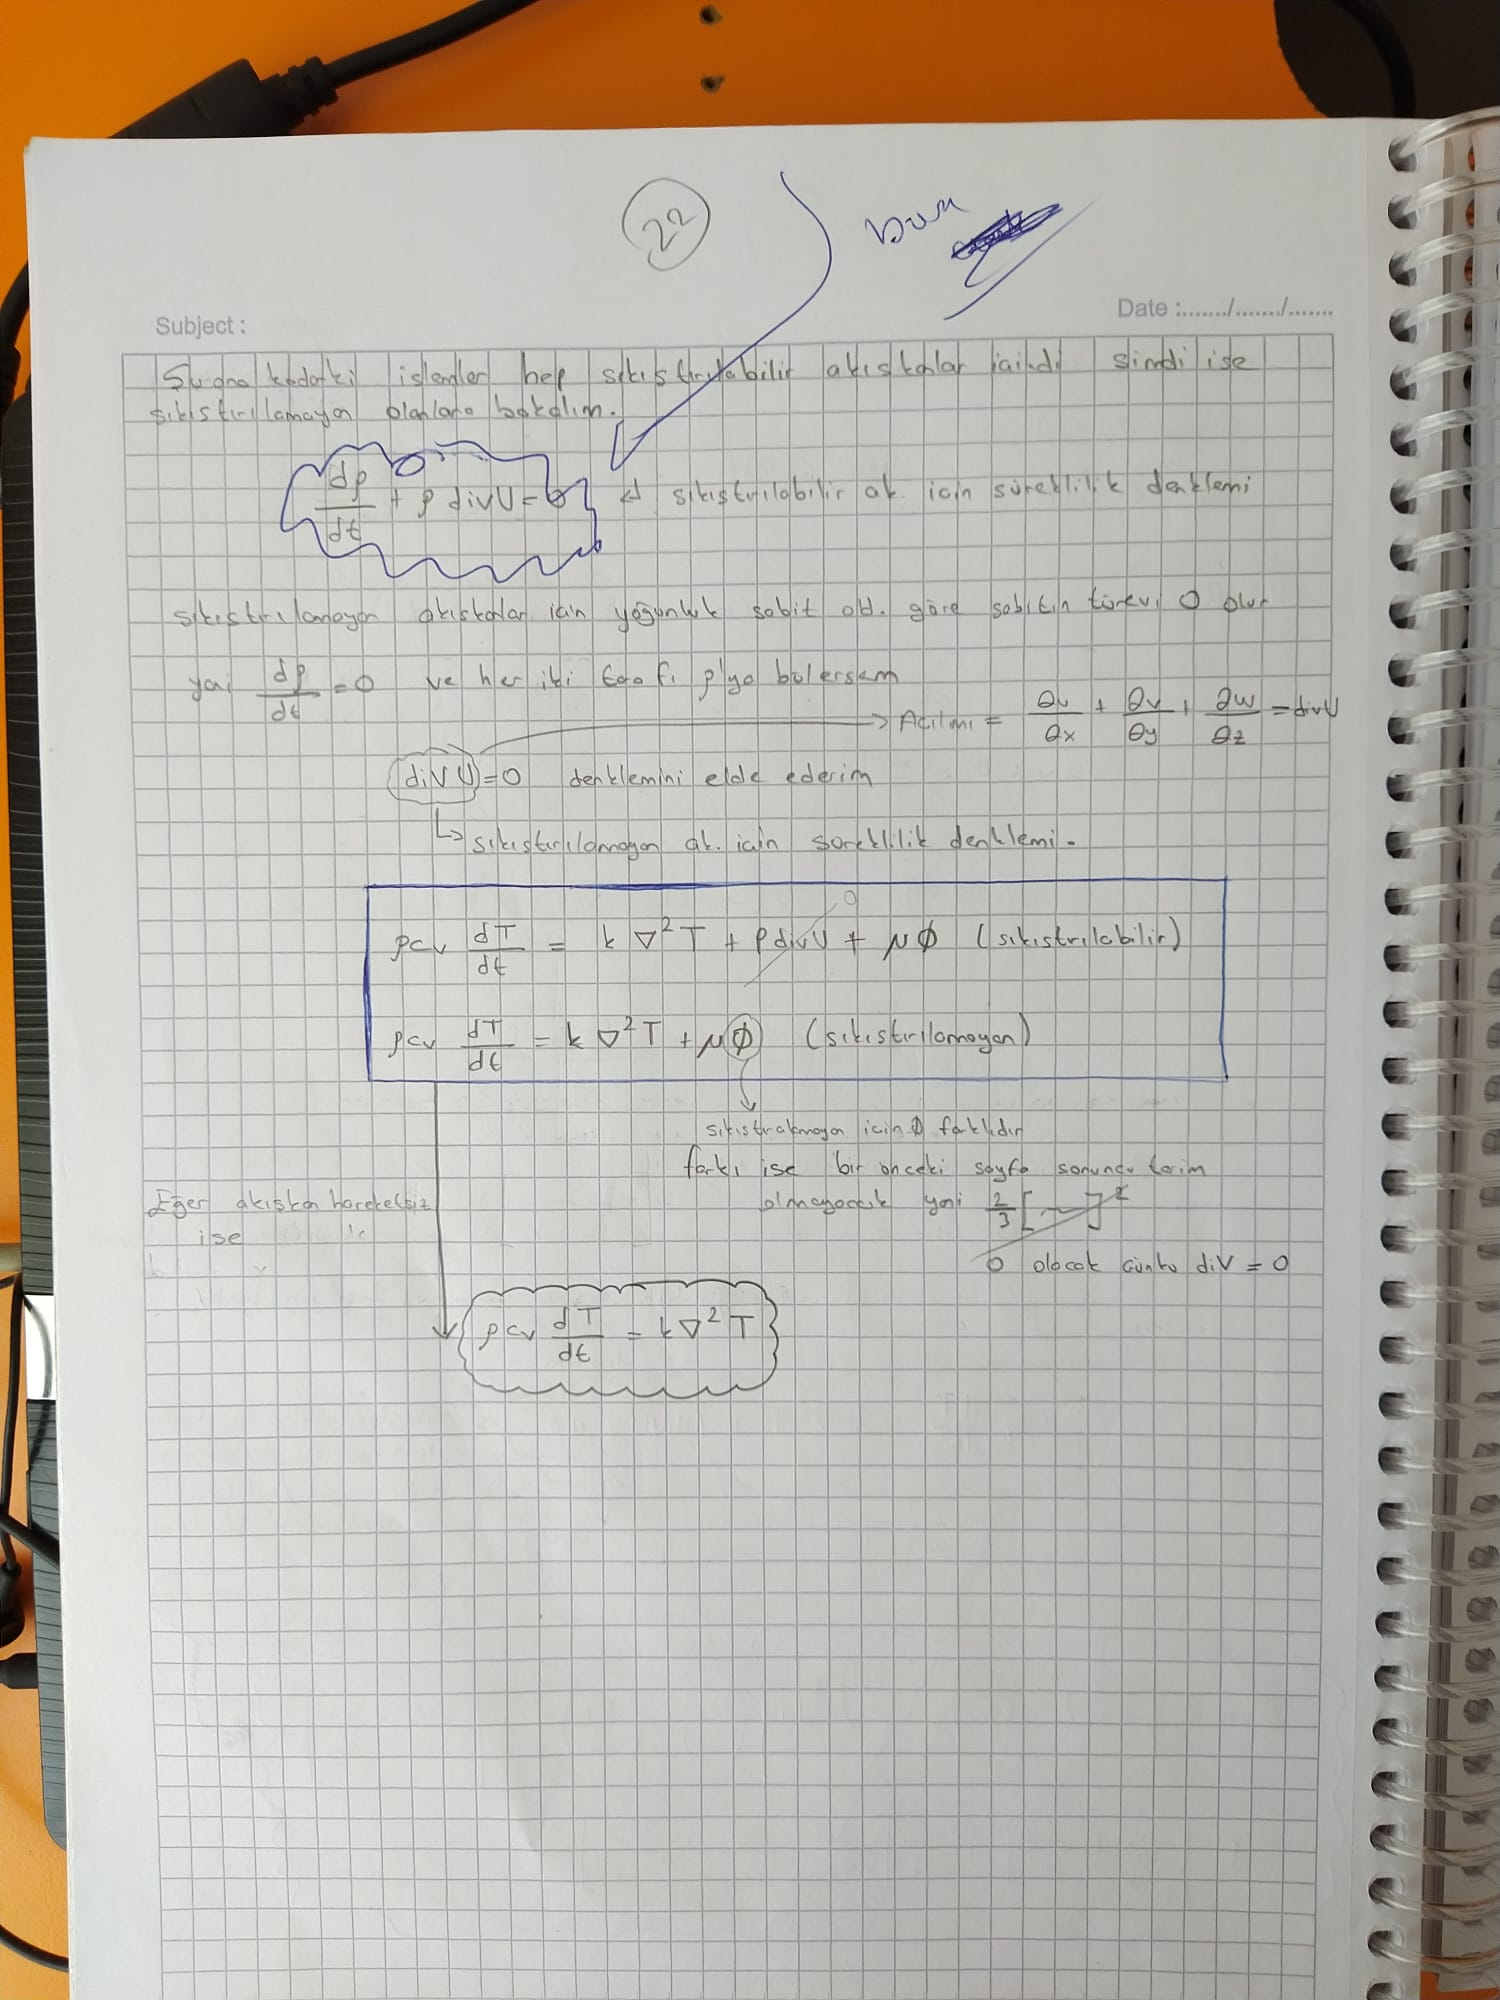 22
Subject :
Date :......./......./.......
Şu ana kadarki islemler hep sıkıstırılabilir akıskanlar icindi simdi ise
sıkıstırılamayan olanlara bakalım.
dρ/dt + ρ divU = 0 sıkıstırılabilir ak. icin süreklilik denklemi
sıkıstırılamayan akıskanlar icin yoğunluk sabit old. göre sabitin türevi 0 olur
yani dρ/dt = 0 ve her iki tarafı ρ'ya bölersem
→ Acılımı = ∂u/∂x + ∂v/∂y + ∂w/∂z = divU
divU = 0 denklemini elde ederim
↳ sıkıstırılamayan ak. icin süreklilik denklemi.
0
ρcv dT/dt = k ∇²T + P divU + μΦ (sıkıstırılabilir)
ρcv dT/dt = k ∇²T + μΦ (sıkıstırılamayan)
sıkıstırılamayan icin Φ farklıdır
farkı ise bir önceki sayfa sonuncu terim
olmayacak yani 2/3 [ ]²
0 olacak cünkü diV = 0
Eğer akıskan hareketsiz
ise
ρcv dT/dt = k∇²T